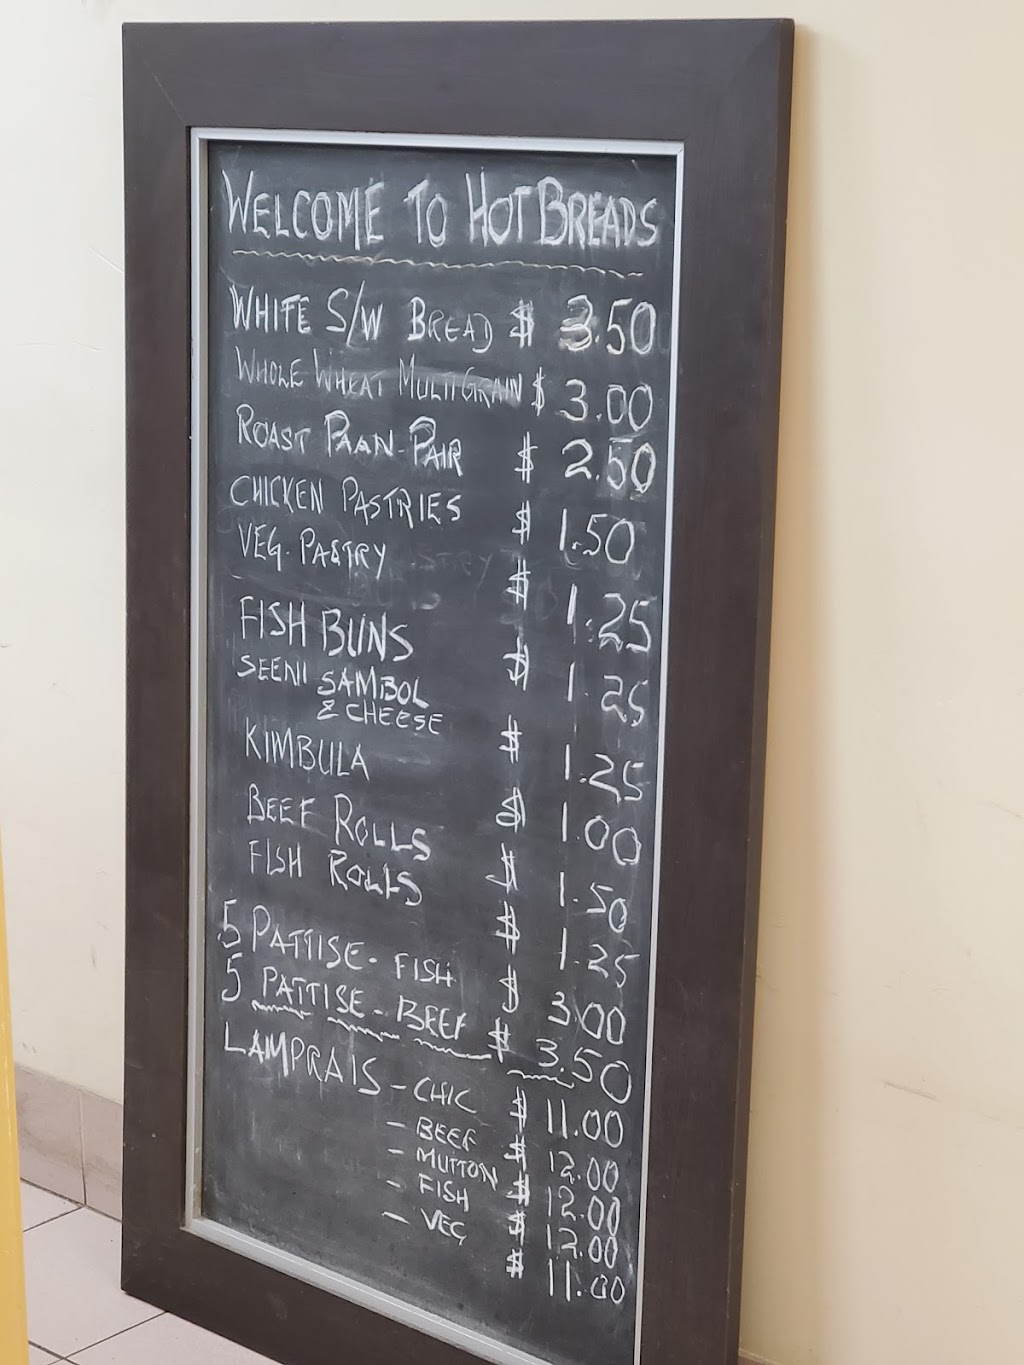 WELCOME TO HOT BREADS
WHITE S/W BREAD $ 3.50
WHOLE WHEAT MULTIGRAIN $ 3.00
ROAST PAAN-PAIR $ 2.50
CHICKEN PASTRIES $ 1.50
VEG. PASTRY $ 1.25
FISH BUNS $ 1.25
SEENI SAMBOL
& CHEESE $ 1.25
KIMBULA $ 1.00
BEEF ROLLS $ 1.50
FISH ROLLS $ 1.25
5 PATTISE - FISH $ 3.00
5 PATTISE - BEEF $ 3.50
LAMPRAIS - CHIC $ 11.00
- BEEF $ 12.00
- MUTTON $ 12.00
- FISH $ 12.00
- VEG $ 11.00